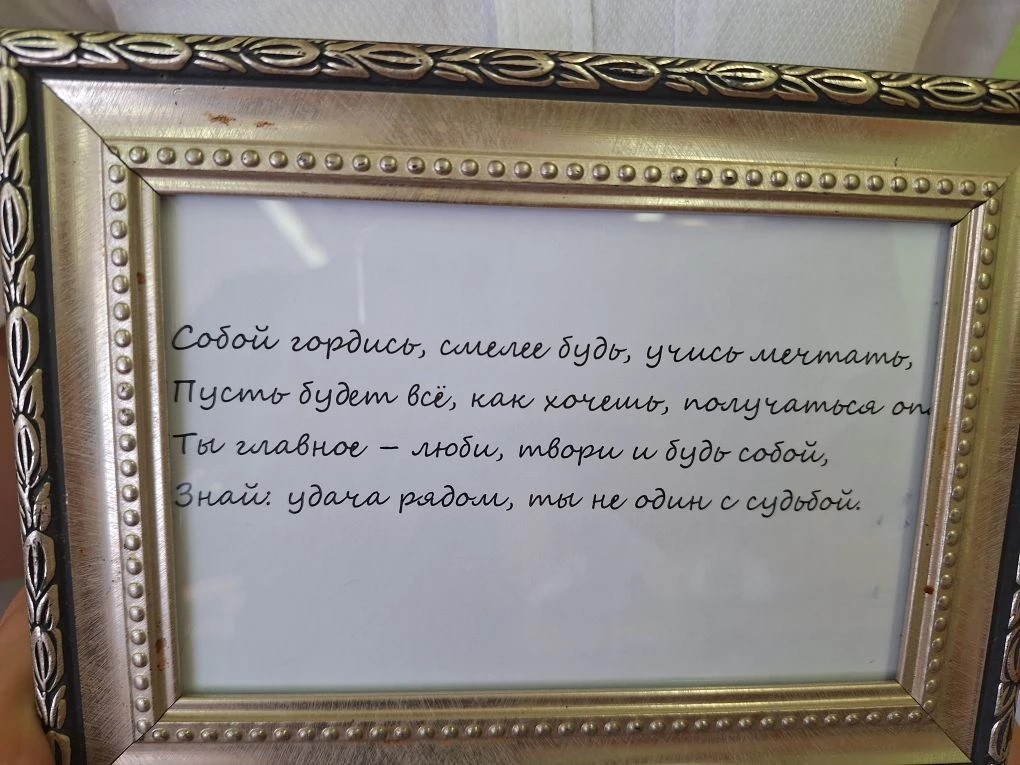 Собой гордись, смелее будь, учись мечтать,
Пусть будет всё, как хочешь, получаться
Ты главное – люби, твори и будь собой,
Знай: удача рядом, ты не один с судьбой.